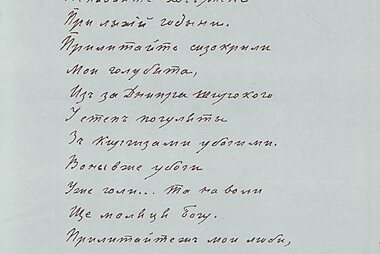 При лыхій годыни.
Прилитайте сизокрили
Мои голубята,
Изъ за Днипра широкого
У степъ погуляты
Зъ Киргизами убогими.
Воны вже убоги
Уже голи... та на воли
Ще молятця Богу.
Прилитайтежъ мои люби,